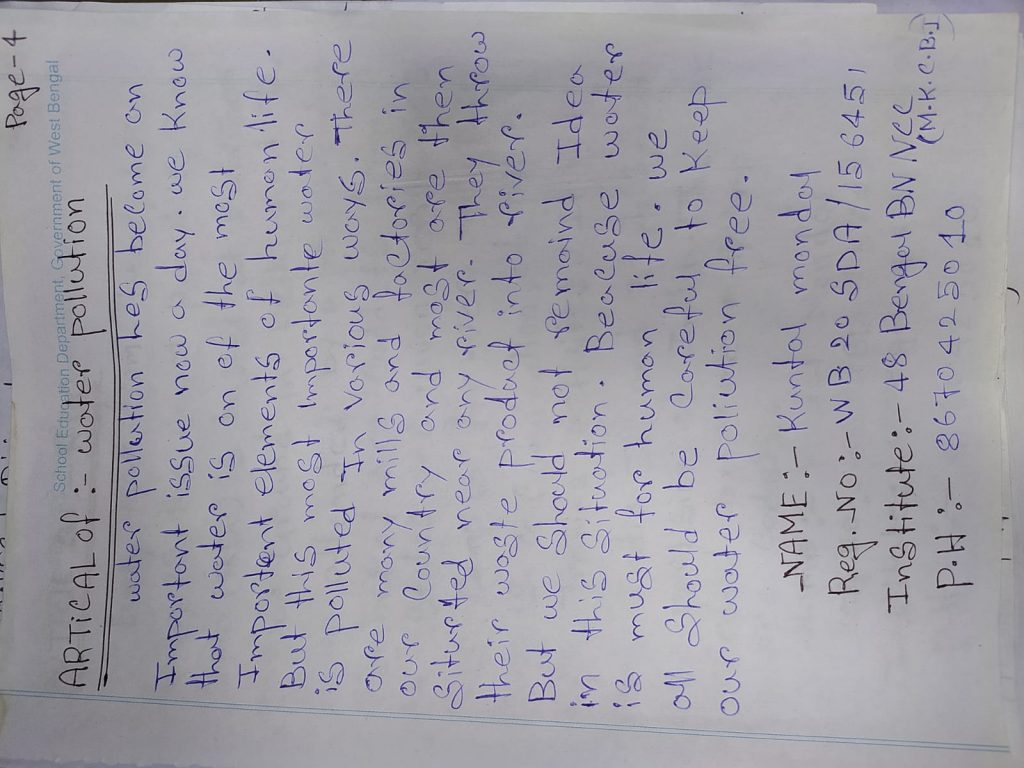 Page-4
School Education Department, Government of West Bengal
ARTiCAL of :- water pollution
water pollution hes become an
Important issue now a day. we know
that water is on of the most
Important elements of human life.
But this most Importante water
is polluted In various ways. There
are many mills and factories in
our Country and most are then
Siturted near any river. They throw
their waste product into river.
But we should not remaind Idea
in this Situation. Beacuse water
is must for human life. we
all Should be Careful to Keep
our water polution free.
NAME :- Kuntal mondal
Reg. No :- WB 20 SDA / 15645,
Institute :- 48 Bengal BN NCC
(M.K.C.B.I)
P.H :- 8670425010